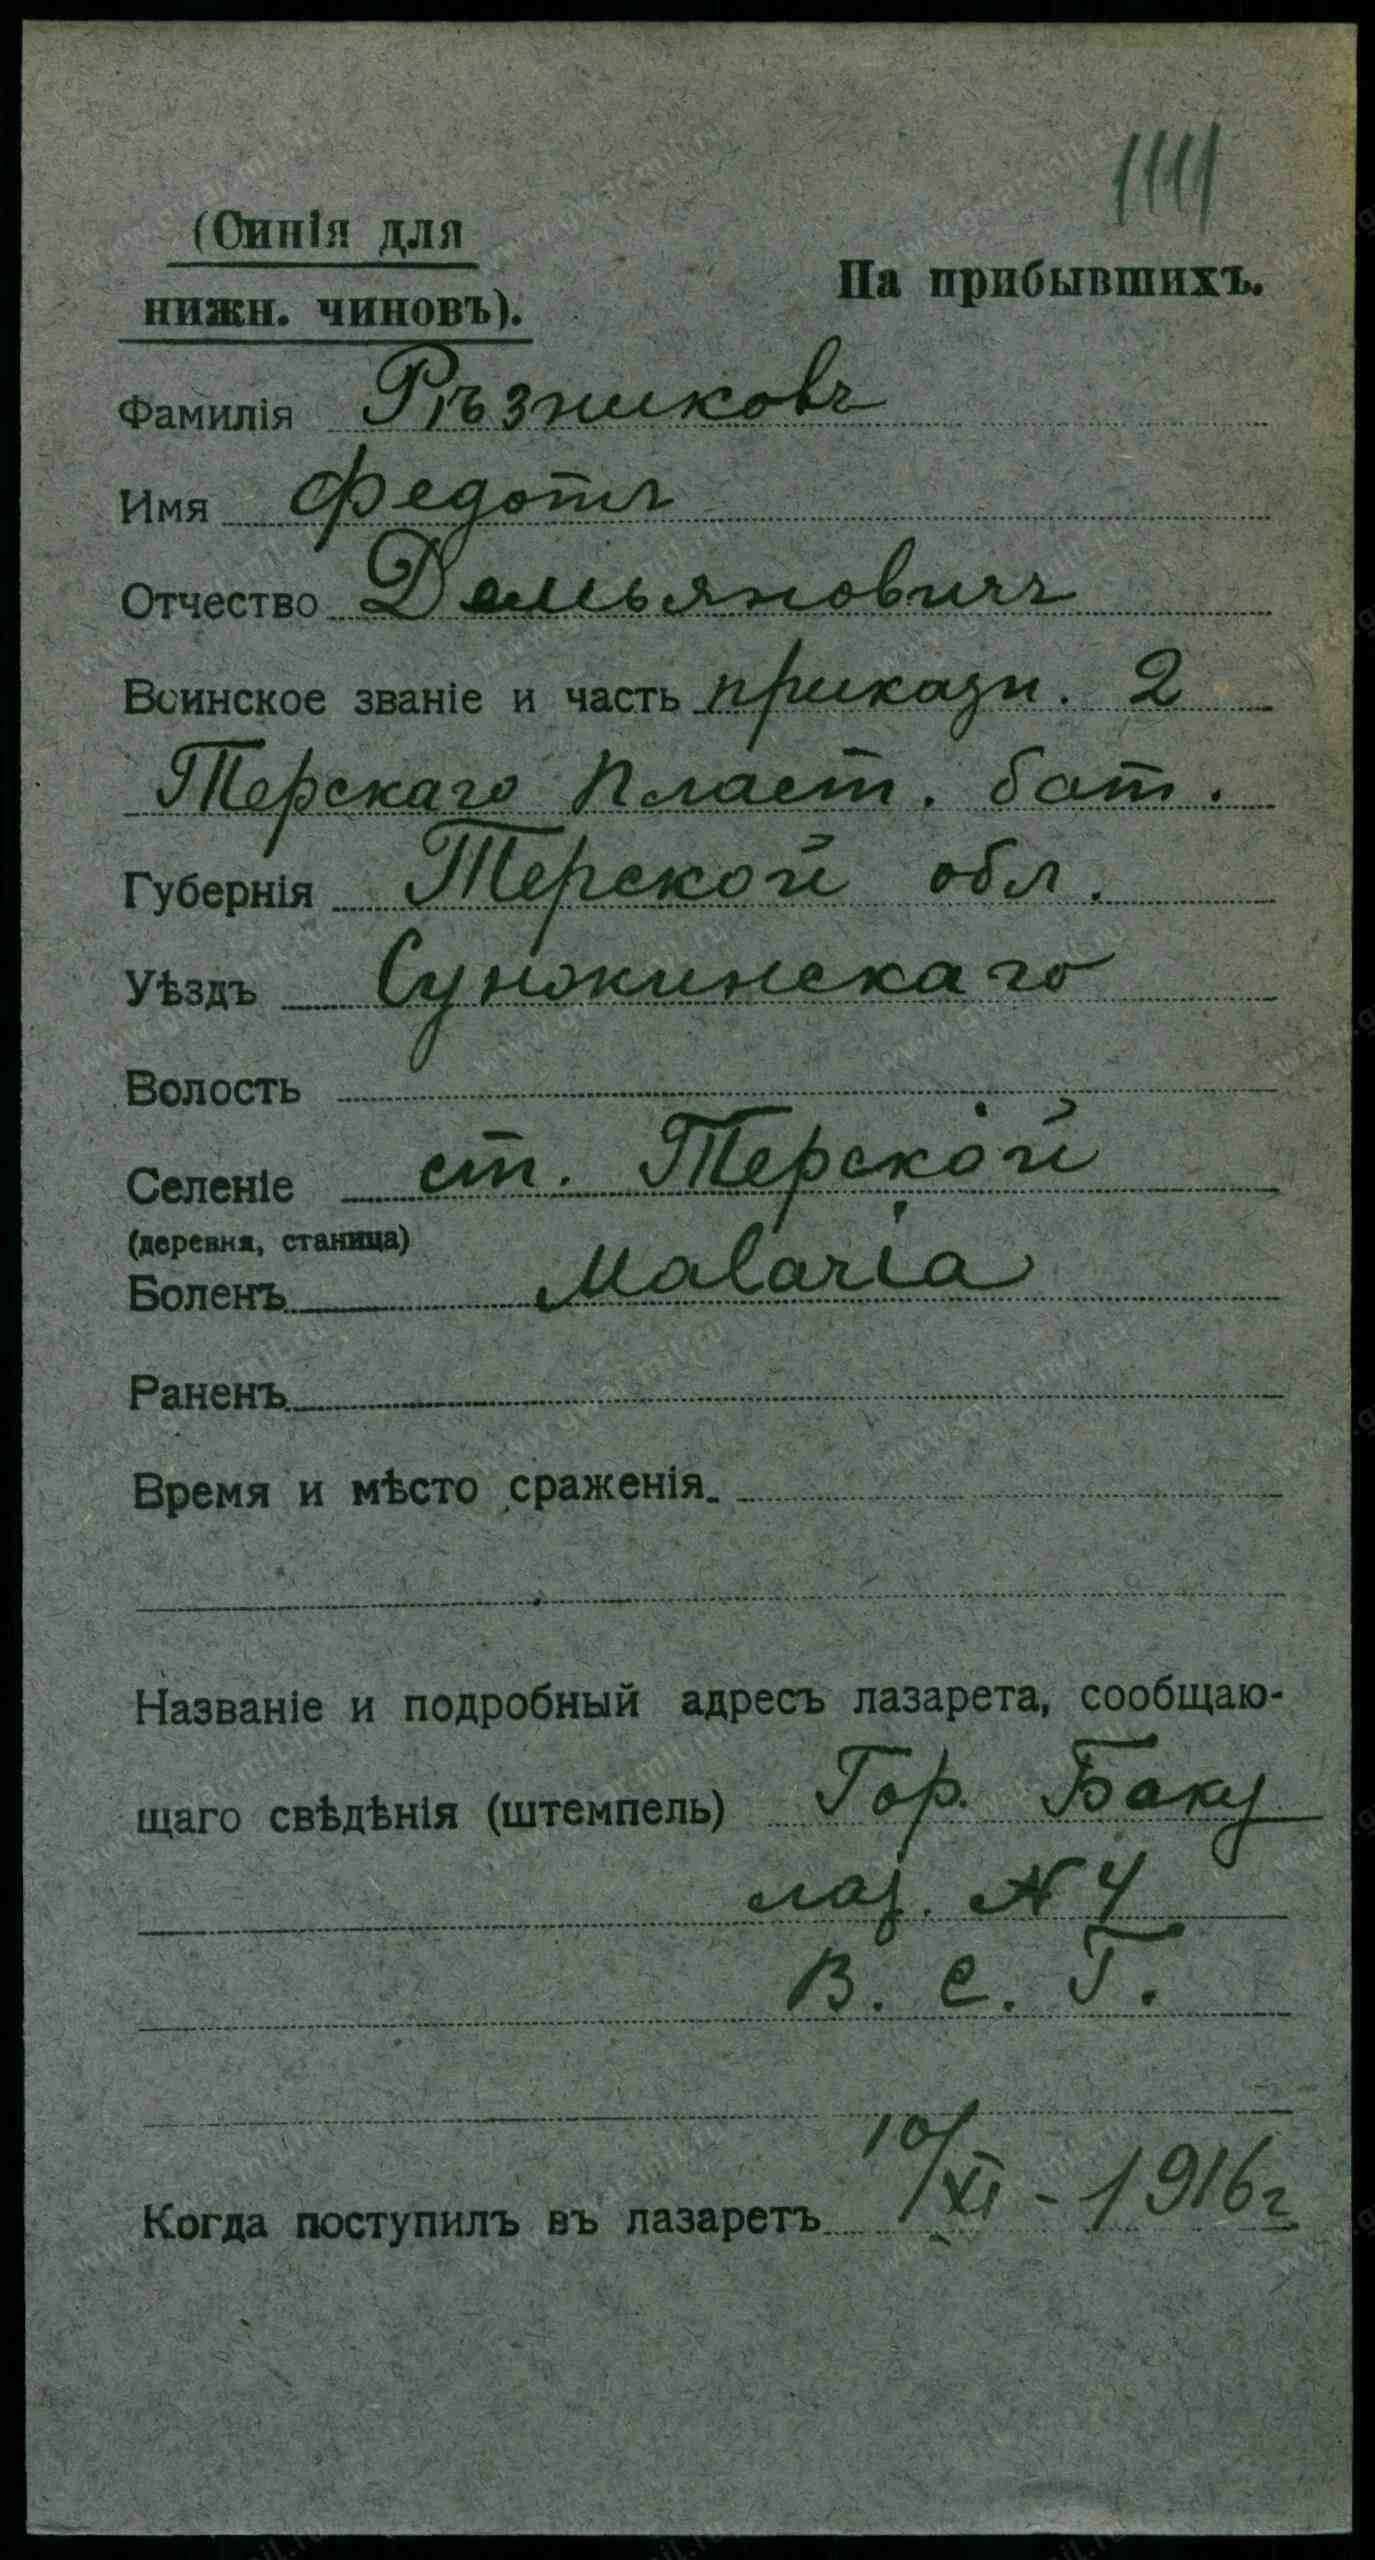 1111
(Синія для
нижн. чиновъ).
На прибывшихъ.
Фамилія Рѣзниковъ
Имя Федотъ
Отчество Демьяновичъ
Воинское званіе и часть приказн. 2
Терскаго Пласт. бат.
Губернія Терской обл.
Уѣздъ Сунжинскаго
Волость
Селеніе ст. Терской
(деревня, станица)
Боленъ Malaria
Раненъ
Время и мѣсто сраженія.
Названіе и подробный адресъ лазарета, сообщаю-
щаго свѣдѣнія (штемпель) Гор. Баку
лаз. № 4
В. С. Г.
Когда поступилъ въ лазаретъ 10/XI - 1916 г